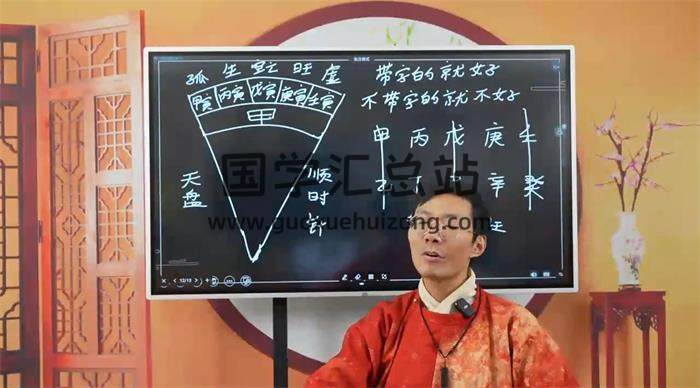 孤 生 空亡 旺 虚
甲寅 丙寅 戊寅 庚寅 壬寅
甲
天盘
顺时针
带字的就好
不带字的就不好
甲 丙 戊 庚 壬
乙 丁 辛 癸
国学汇总站
www.guoxuehuizong.com